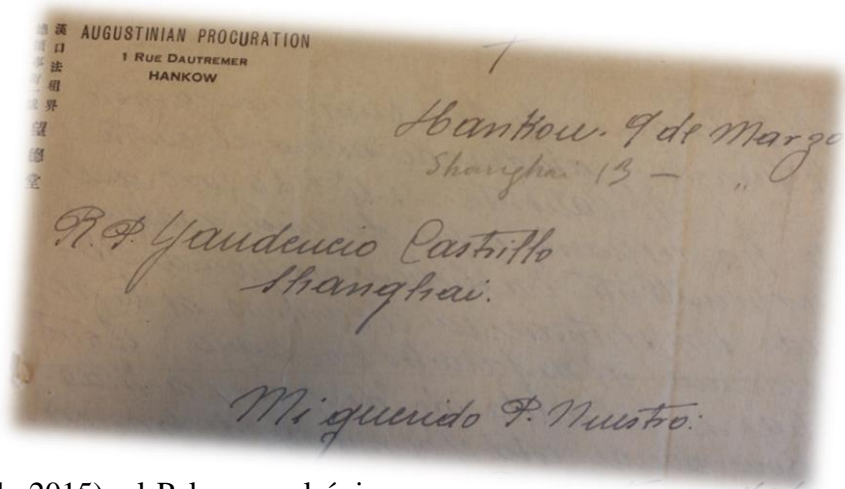 漢口法租界
望德堂
AUGUSTINIAN PROCURATION
1 RUE DAUTREMER
HANKOW
Hankow. 9 de Marzo
Shanghai 13 — "
R. P. Gaudencio Castrillo
Shanghai.
Mi querido P. Nuestro: